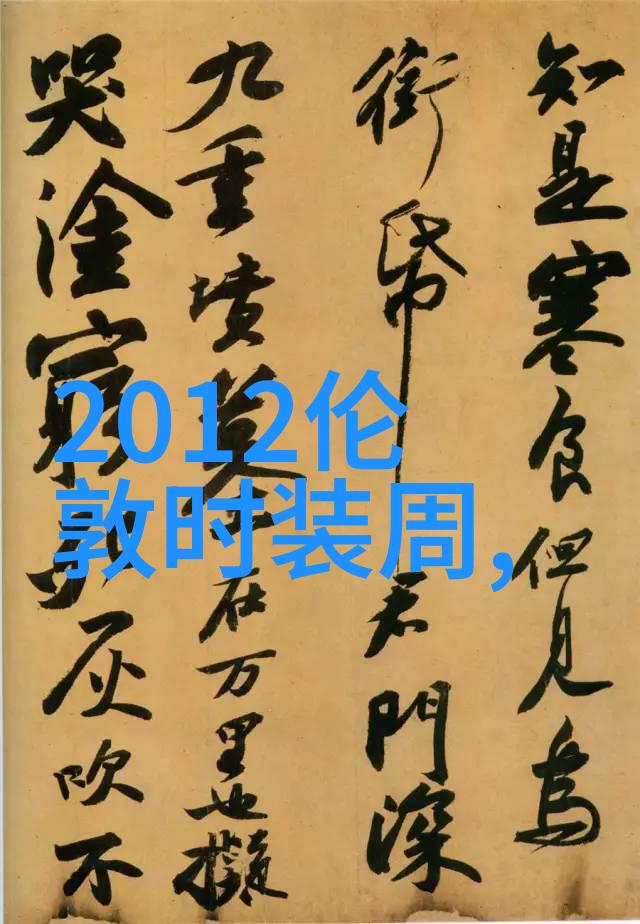 知是寒食但見烏
銜帋君門深
九重墳墓在万里也擬
哭塗窮死灰吹不
2012伦
敦时装周,